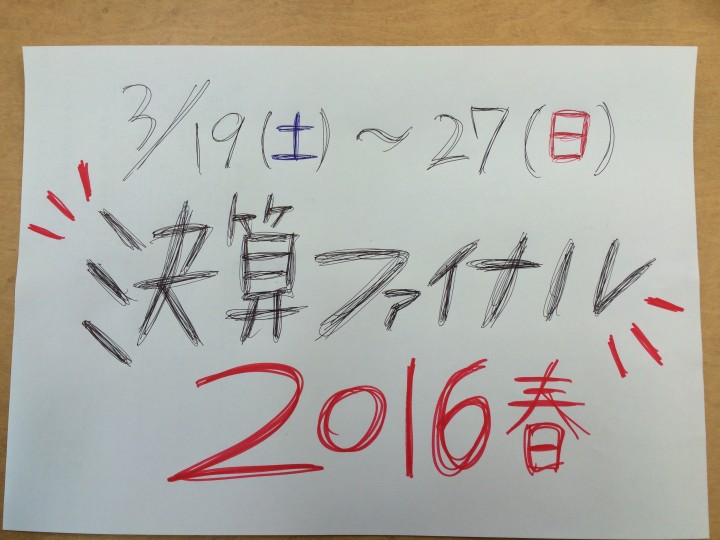 3/19(土)~27(日)
決算ファイナル
2016春